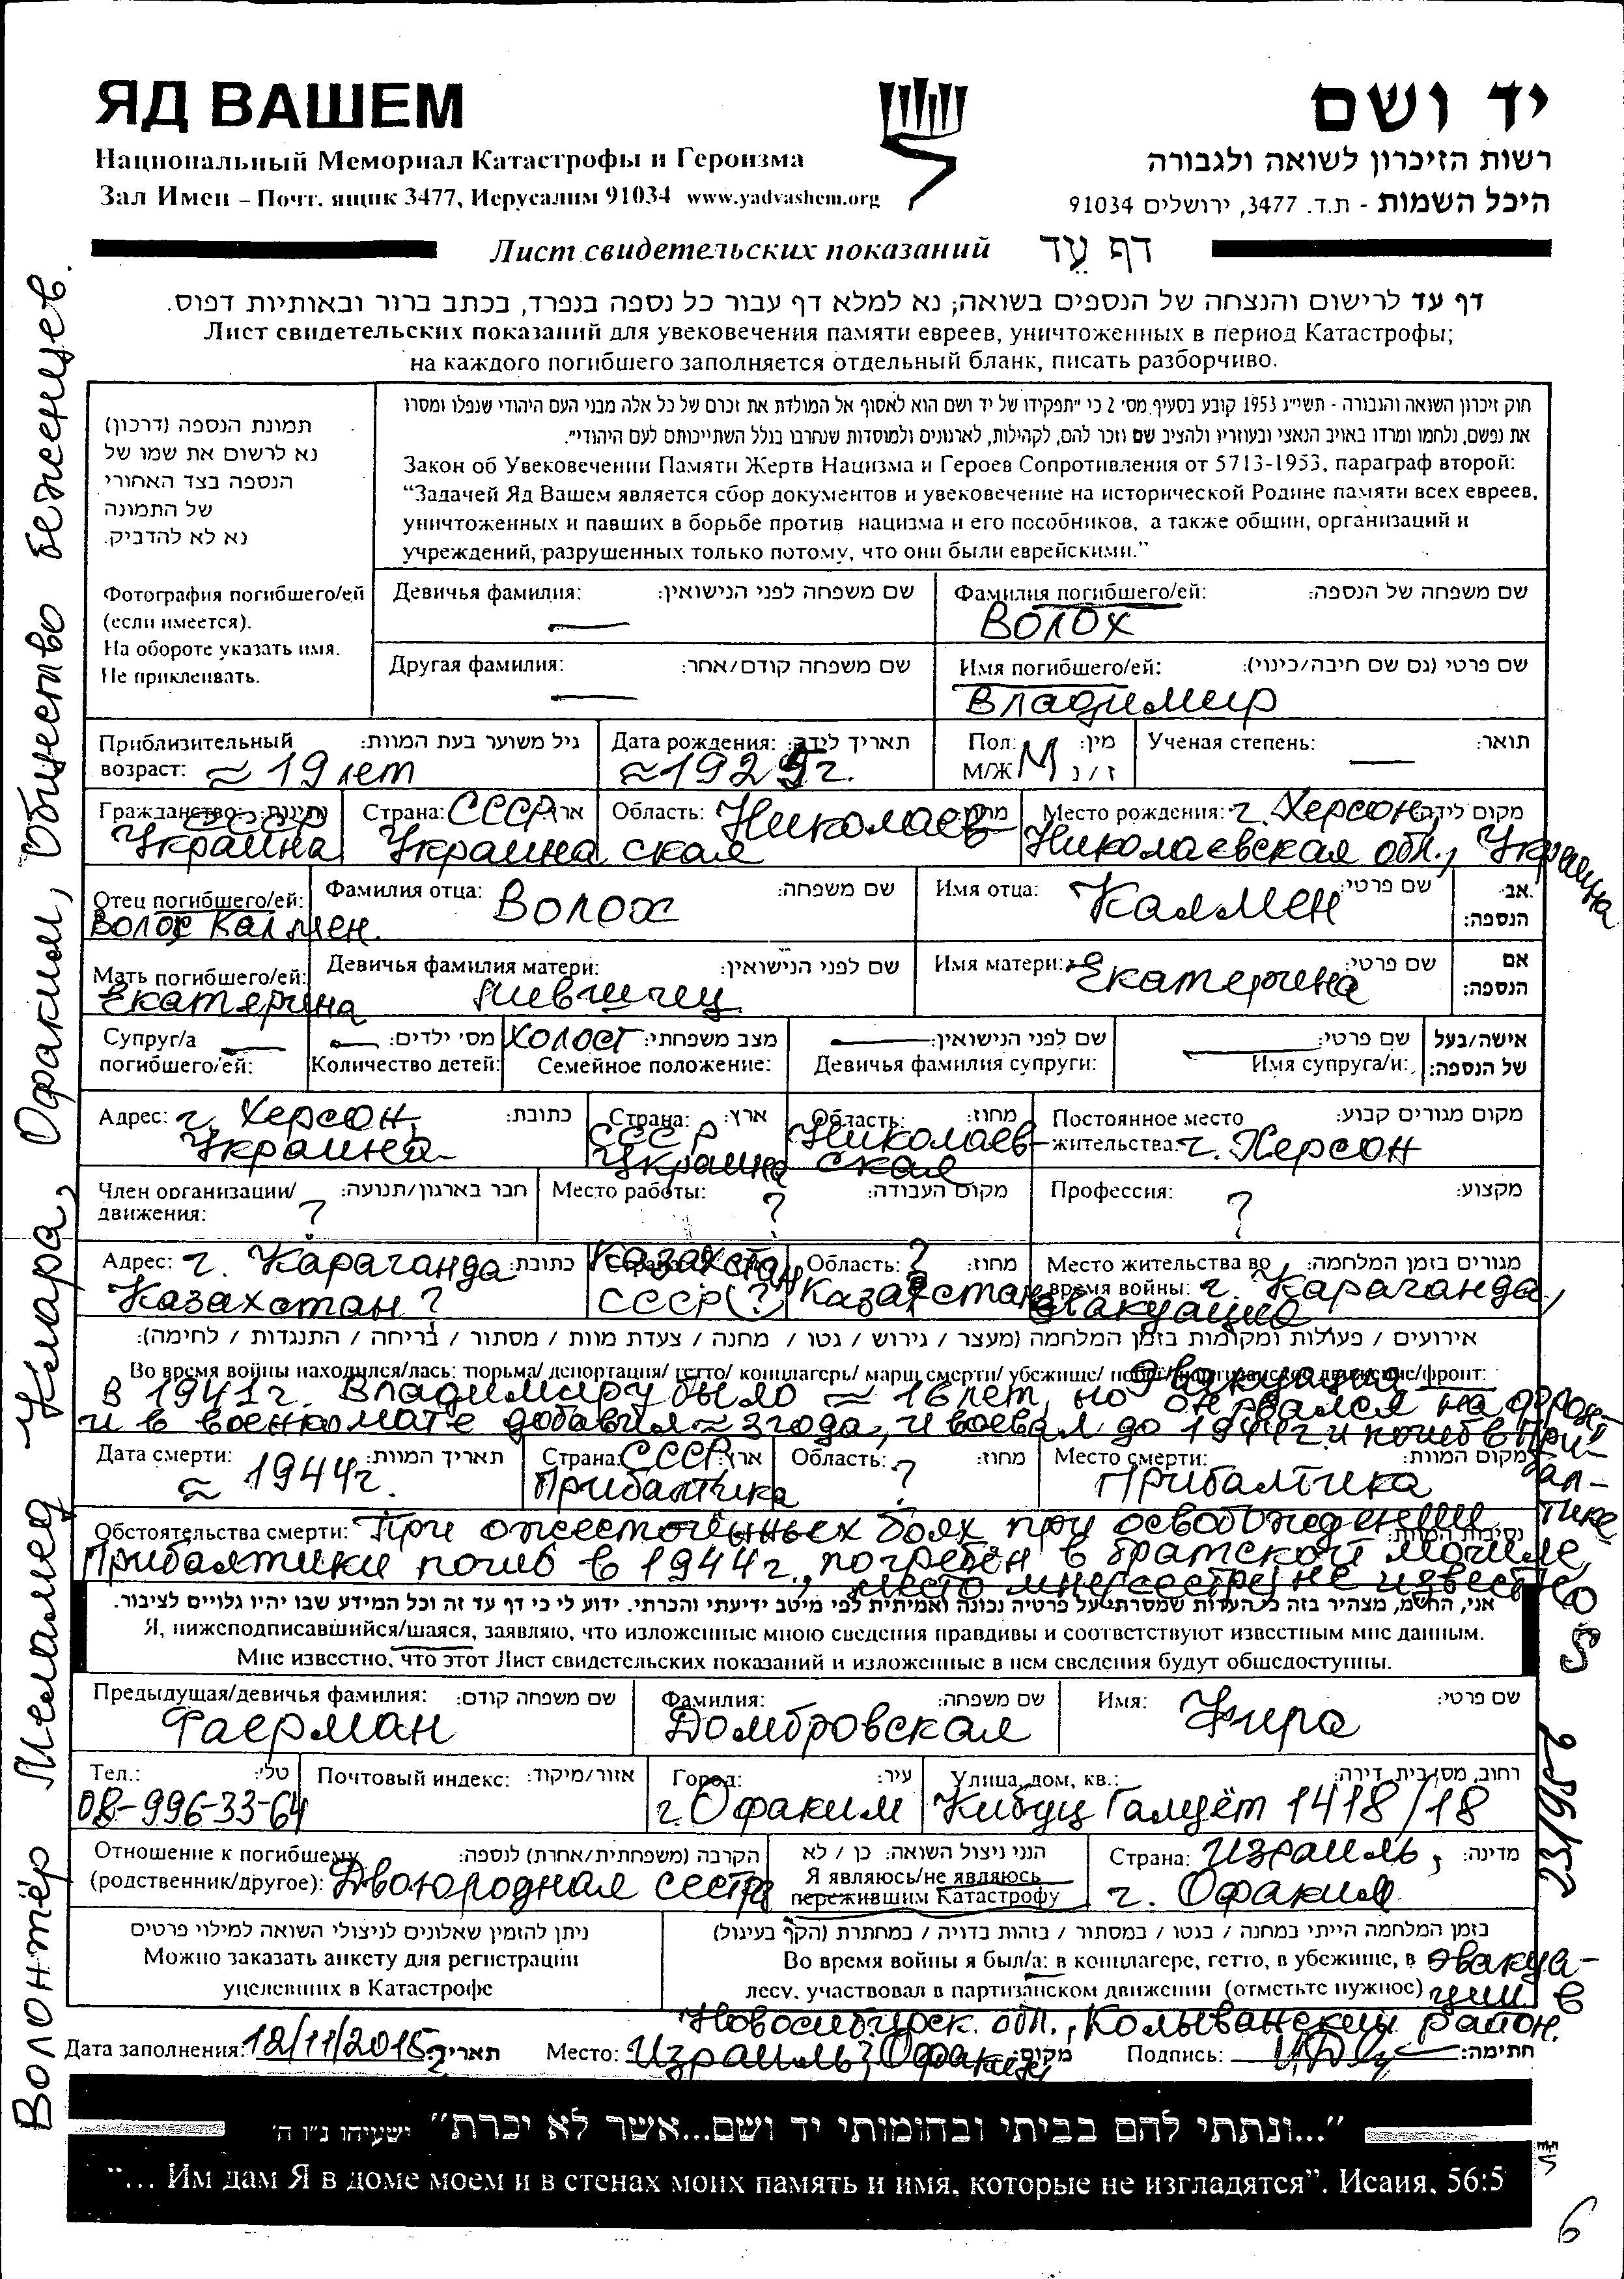 ЯД ВАШЕМ
יד ושם
Национальный Мемориал Катастрофы и Героизма
רשות הזיכרון לשואה ולגבורה
Зал Имен – Почт. ящик 3477, Иерусалим 91034 www.yadvashem.org
היכל השמות - ת.ד. 3477, ירושלים 91034
Лист свидетельских показаний דף עד
דף עד לרישום והנצחה של הנספים בשואה; נא למלא דף עבור כל נספה בנפרד, בכתב ברור ובאותיות דפוס.
Лист свидетельских показаний для увековечения памяти евреев, уничтоженных в период Катастрофы;
на каждого погибшего заполняется отдельный бланк, писать разборчиво.
תמונת הנספה (דרכון)
נא לרשום את שמו של
הנספה בצד האחורי
של התמונה
נא לא להדביק.
Фотография погибшего/ей
(если имеется).
На обороте указать имя.
Не приклеивать.
חוק זיכרון השואה והגבורה - תשי״ג 1953 קובע בסעיף מס׳ 2 כי ״תפקידו של יד ושם הוא לאסוף אל המולדת את זכרם של כל אלה מבני העם היהודי שנפלו ומסרו
את נפשם, נלחמו ומרדו באויב הנאצי ובעוזריו ולהציב שם וזכר להם, לקהילות, לארגונים ולמוסדות שנחרבו בגלל השתייכותם לעם היהודי״.
Закон об Увековечении Памяти Жертв Нацизма и Героев Сопротивления от 5713-1953, параграф второй:
“Задачей Яд Вашем является сбор документов и увековечение на исторической Родине памяти всех евреев,
уничтоженных и павших в борьбе против нацизма и его пособников, а также общин, организаций и
учреждений, разрушенных только потому, что они были еврейскими.”
Девичья фамилия: שם משפחה לפני הנישואין: —
Фамилия погибшего/ей: שם משפחה של הנספה:
Волох
Другая фамилия: שם משפחה קודם/אחר: —
Имя погибшего/ей: שם פרטי (גם שם חיבה/כינוי):
Владимир
Приблизительный возраст: גיל משוער בעת המוות: ≈ 19 лет
Дата рождения: תאריך לידה: ≈1925г.
Пол: М/Ж מין: ז / נ М
Ученая степень: תואר: —
Гражданство: נתינות: СССР Украина
Страна: ארץ: СССР Украина
Область: מחוז: Николаевская
Место рождения: מקום לידה: г. Херсон, Николаевская обл., Украина
Отец погибшего/ей: Волох Калмен.
Фамилия отца: שם משפחה: Волох
Имя отца: שם פרטי: Калмен
אב הנספה:
Мать погибшего/ей: Екатерина
Девичья фамилия матери: שם לפני הנישואין:
Имя матери: שם פרטי: Екатерина
אם הנספה:
Супруг/а погибшего/ей: —
מס׳ ילדים: Количество детей: —
מצב משפחתי: Семейное положение: Холост
שם לפני הנישואין: Девичья фамилия супруги: —
שם פרטי: Имя супруга/и: —
אישה/בעל של הנספה:
Адрес: כתובת: г. Херсон, Украина
Страна: ארץ: СССР Украина
Область: מחוז: Николаевская
Постоянное место жительства: מקום מגורים קבוע: г. Херсон
Член организации/движения: חבר בארגון/תנועה: ?
Место работы: מקום העבודה: ?
Профессия: מקצוע: ?
Адрес: כתובת: г. Караганда Казахстан ?
Страна: Казахстан СССР (?)
Область: מחוז: ? Казахстан
Место жительства во время войны: מגורים בזמן המלחמה: г. Караганда, эвакуация
אירועים / פעולות ומקומות בזמן המלחמה (מעצר / גירוש / גטו / מחנה / צעדת מוות / מסתור / בריחה / התנגדות / לחימה):
Во время войны находился/лась: тюрьма/ депортация/ гетто/ концлагерь/ марш смерти/ убежище/ побег/ партизанское движение/фронт: Эвакуация
В 1941г. Владимиру было ≈ 16 лет, но он рвался на фронт
и в военкомате добавил ≈ 3 года, и воевал до 1944г. и погиб в Прибалтике
Дата смерти: תאריך המוות: ≈ 1944г.
Страна: ארץ: СССР Прибалтика
Область: מחוז: ?
Место смерти: מקום המוות: Прибалтика
Обстоятельства смерти: נסיבות המוות: При ожесточённых боях при освобождении
Прибалтики погиб в 1944г., погребён в братской могиле,
место мне (сестре) не известно
אני, החי״מ, מצהיר בזה כי העדות שמסרתי על פרטיה נכונה ואמיתית לפי מיטב ידיעתי והכרתי. ידוע לי כי דף עד זה וכל המידע שבו יהיו גלויים לציבור.
Я, нижеподписавшийся/шаяся, заявляю, что изложенные мною сведения правдивы и соответствуют известным мне данным.
Мне известно, что этот Лист свидетельских показаний и изложенные в нем сведения будут общедоступны.
Предыдущая/девичья фамилия: שם משפחה קודם: Фаерман
Фамилия: שם משפחה: Домбровская
Имя: שם פרטי: Кира
Тел.: טל׳: 08-996-33-64
Почтовый индекс: אזור/מיקוד:
Город: עיר: г. Офаким
Улица, дом, кв.: רחוב, מס׳ בית, דירה: Кибуц Галуёт 1418/18
Отношение к погибшему (родственник/другое): הקרבה (משפחתית/אחרת) לנספה: Двоюродная сестра
הנני ניצול השואה: כן / לא
Я являюсь/не являюсь
пережившим Катастрофу
Страна: מדינה: Израиль, г. Офаким
ניתן להזמין שאלונים לניצולי השואה למילוי פרטים
Можно заказать анкету для регистрации
уцелевших в Катастрофе
בזמן המלחמה הייתי במחנה / בגטו / במסתור / בזהות בדויה / במחתרת (הקף בעיגול)
Во время войны я был/а: в концлагере, гетто, в убежище, в
лесу, участвовал в партизанском движении (отметьте нужное) эвакуации в
Новосибирск. обл., Колыванский район.
Дата заполнения: 12/11/2015г. תאריך: Место: Израиль, Офаким מקום: Подпись: חתימה:
״...ונתתי להם בביתי ובחומותי יד ושם...אשר לא יכרת״ ישעיהו נ״ו ה׳
“... Им дам Я в доме моем и в стенах моих память и имя, которые не изгладятся”. Исаия, 56:5
Волонтёр Меламед Клара, Офаким, Общество беженцев.
6